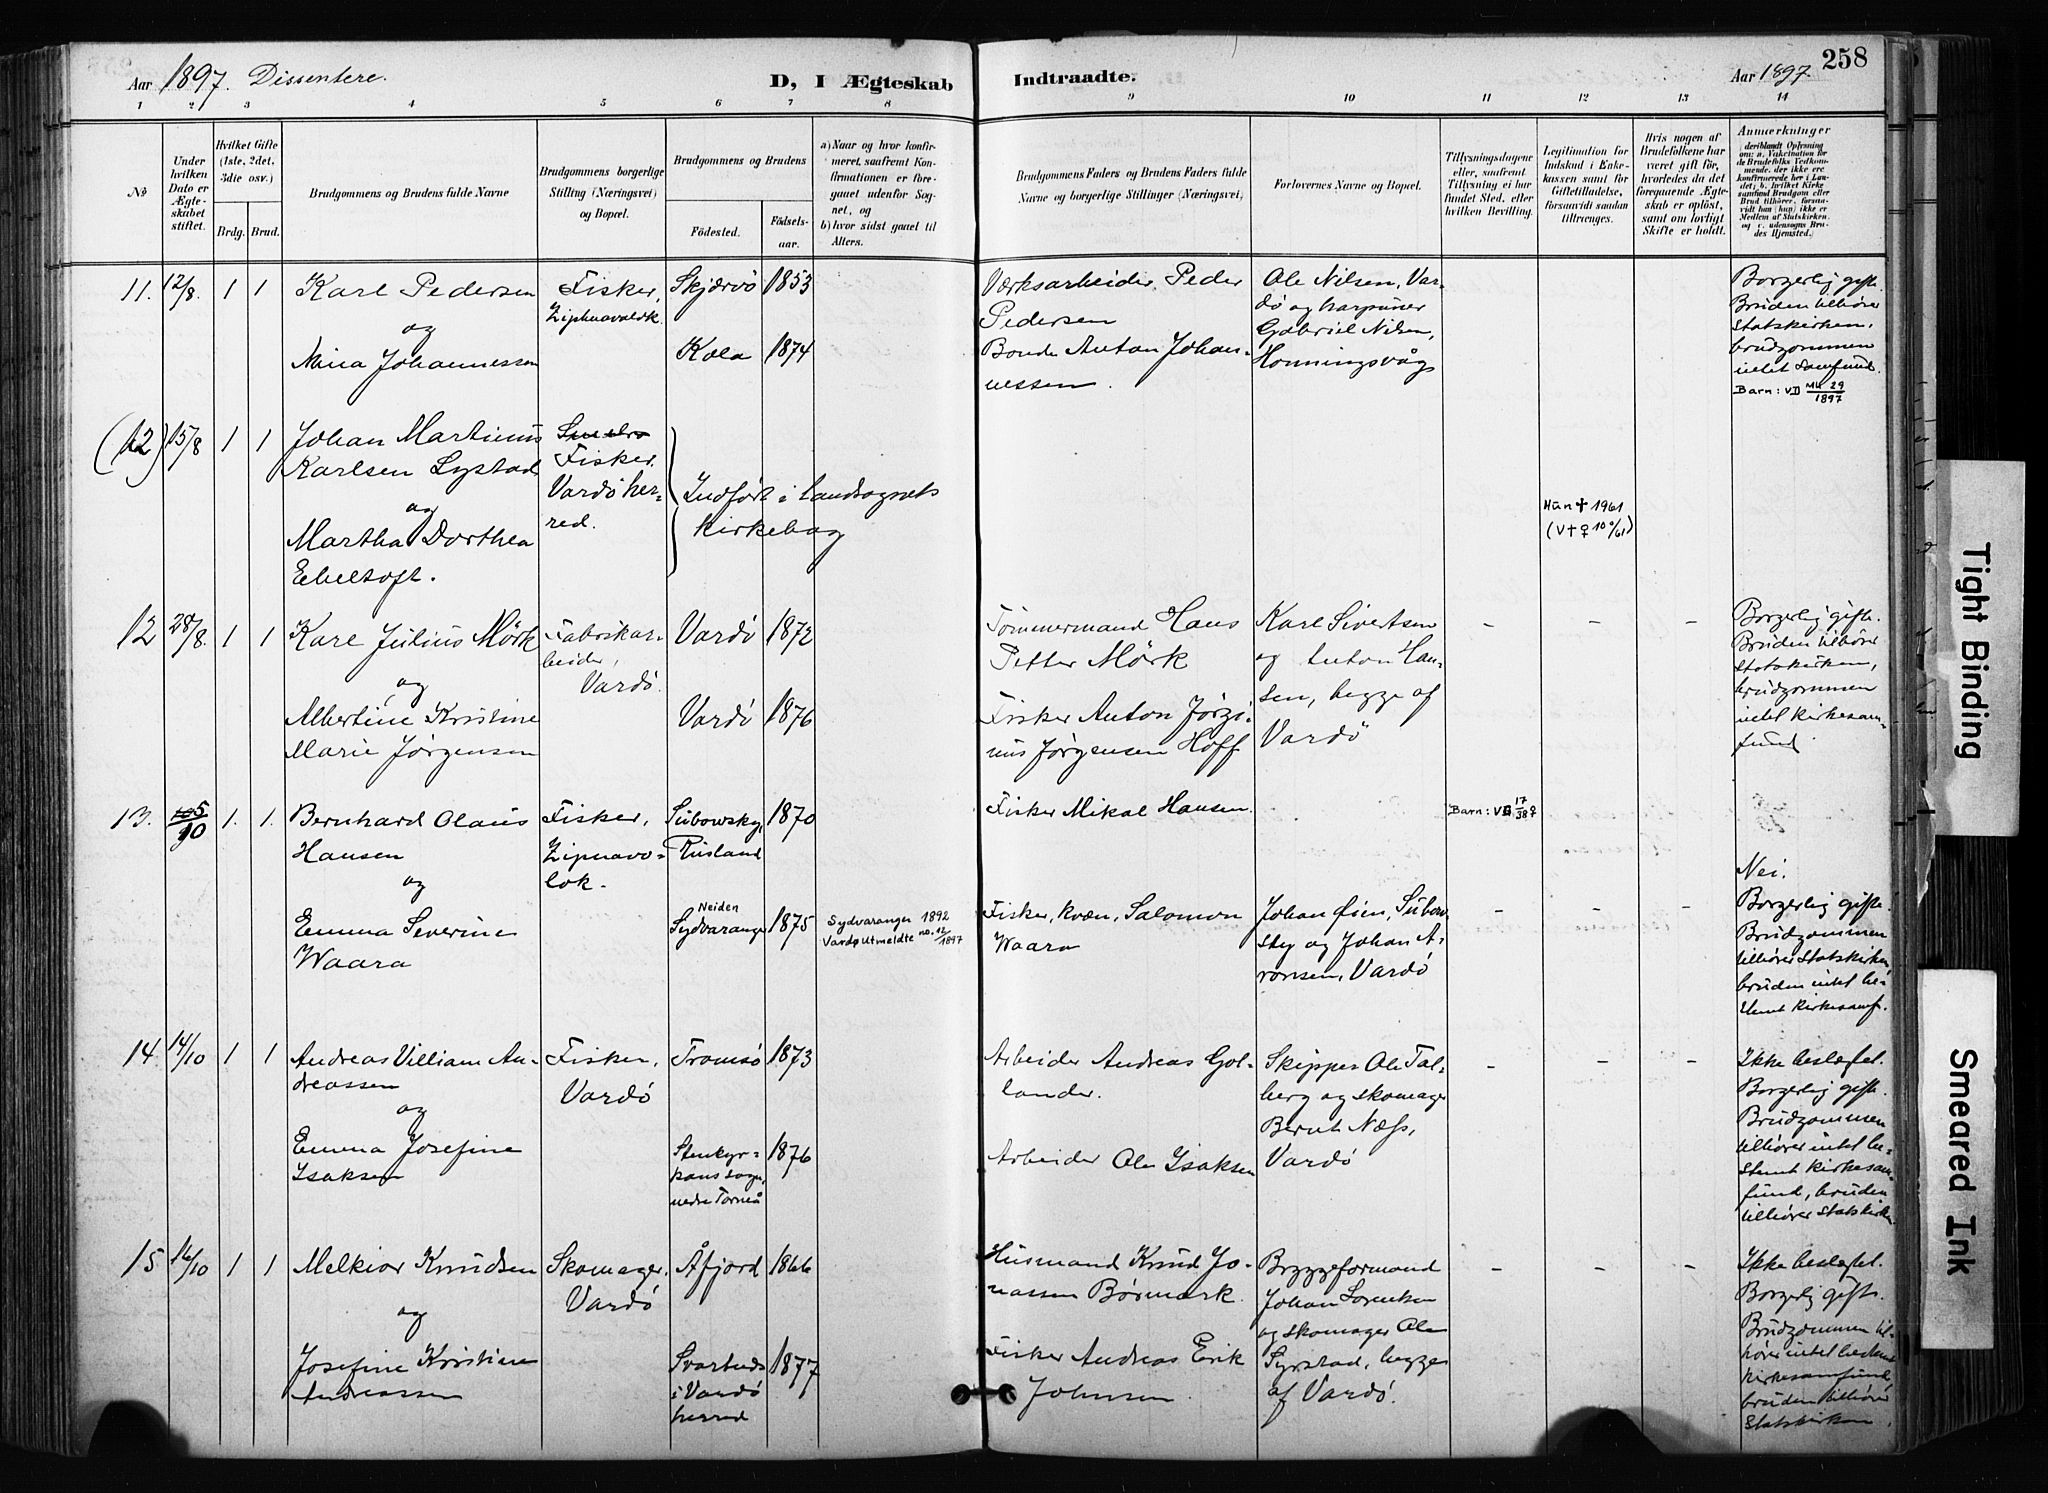 Aar 1897. Dissentere.
D, I Ægteskab
Indtraadte.
Aar 1897.
258
1 2 3 4 5 6 7 8 9 10 11 12 13 14
No
Under hvilken Dato er Ægteskabet stiftet.
Hvilket Gifte (1ste, 2det, 3die osv.)
Brdg. Brud.
Brudgommens og Brudens fulde Navne
Brudgommens borgerlige Stilling (Næringsvei) og Bopæl.
Brudgommens og Brudens
Födested. Födsels-aar.
a) Naar og hvor konfirmeret, saafremt Konfirmationen er foregaaet udenfor Sognet, og
b) hvor sidst gaaet til Alters.
Brudgommens Faders og Brudens Faders fulde Navne og borgerlige Stillinger (Næringsvei)
Forlovernes Navne og Bopæl.
Tillysningsdagene eller, saafremt Tillysning ei har fundet Sted, efter hvilken Bevilling.
Legitimation for Indskud i Enkekassen samt for Giftetilladelse, forsaavidt saadan tiltrænges.
Hvis nogen af Brudefolkene har været gift för, hvorledes da det foregaaende Ægteskab er oplöst, samt om lovligt Skifte er holdt.
Anmærkninger
11. 12/8. 1 1 Karl Pedersen
og
Nina Johannessen
Fisker,
Zipnavolok.
Skjærvö 1853
Kola 1874
Værksarbeider Peder
Pedersen
Bonde Anton Johan-
nessen.
Ole Nilsen, Var-
dö og harpuner
Gabriel Nilsen,
Honningsvåg
Borgerlig gifte.
Bruden tilhører
Statskirken,
brudgommen
intet samfund.
Barn: VD Mk 29
1897
(12) 15/8 1 1 Johan Martinus
Karlsen Lystad
og
Martha Dorthea
Ebeltoft.
Fisker.
Vardö her-
red.
Indfört i landsognets
kirkebog
Hun † 1961
12 28/8. 1 1 Karl Julius Mörk
og
Albertine Kristine
Marie Jørgensen
Fabrikar-
beider,
Vardö.
Vardö 1872
Vardö 1876
Tömmermand Hans
Petter Mörk
Fisker Anton Jörgi-
nus Jørgensen Hoff
Karl Sivertsen
og Anton Han-
sen, begge af
Vardö
– – –
Borgerlig gifte.
Bruden tilhører
Statskirken,
brudgommen
intet kirkesam-
fund.
13. 5/10 1. 1. Bernhard Olaus
Hansen
og
Emma Severine
Waara
Fisker,
Zipnavo-
lok.
Subowsky, 1870
Rusland
Neiden
Sydvaranger 1875
Sydvaranger 1892
Vardø utmeldte no. 12/1897
Fisker Mikal Hansen.
Fisker, kvæn, Salomon
Waara
Johan Øien, Subow-
sky og Johan A-
ronsen, Vardö
Barn: VD 17/387
– – –
Nei.
Borgerlig gifte.
Brudgommen
tilhører Statskirken,
bruden intet be-
stemt kirkesamf.
14. 14/10 1 1 Andreas Villiam An-
dreassen
og
Emma Josefine
Isaksen
Fisker,
Vardö
Tromsö 1873
Stenkyr-
kans sogn,
nedre Torneå
1876
Arbeider Andreas Gol-
lander.
Arbeider Ole Isaksen
Skipper Ole Tal-
berg og skomager
Bernt Næss,
Vardö
– – –
Ikke beslægtet.
Borgerlig gifte.
Brudgommen
tilhører intet be-
stemt kirkesam-
fund, bruden
tilhører Statskirken
15 16/10 1 1 Melkior Knudsen
og
Josefine Kristine
Andreassen
Skomager,
Vardö
Åfjord 1866
Svartnæs
i Vardö
herred
1877
Husmand Knud Jo-
nassen Börmark.
Fisker Andreas Erik
Johnsen.
Bryggeformand
Johan Lorentsen
og skomager Ole
Syrstad, begge
af Vardö.
– – –
Ikke beslægtet.
Borgerlig gifte.
Brudgommen til-
hører intet bestemt
kirkesamfund,
bruden tilhører
Statskirken.
Tight Binding
Smeared Ink